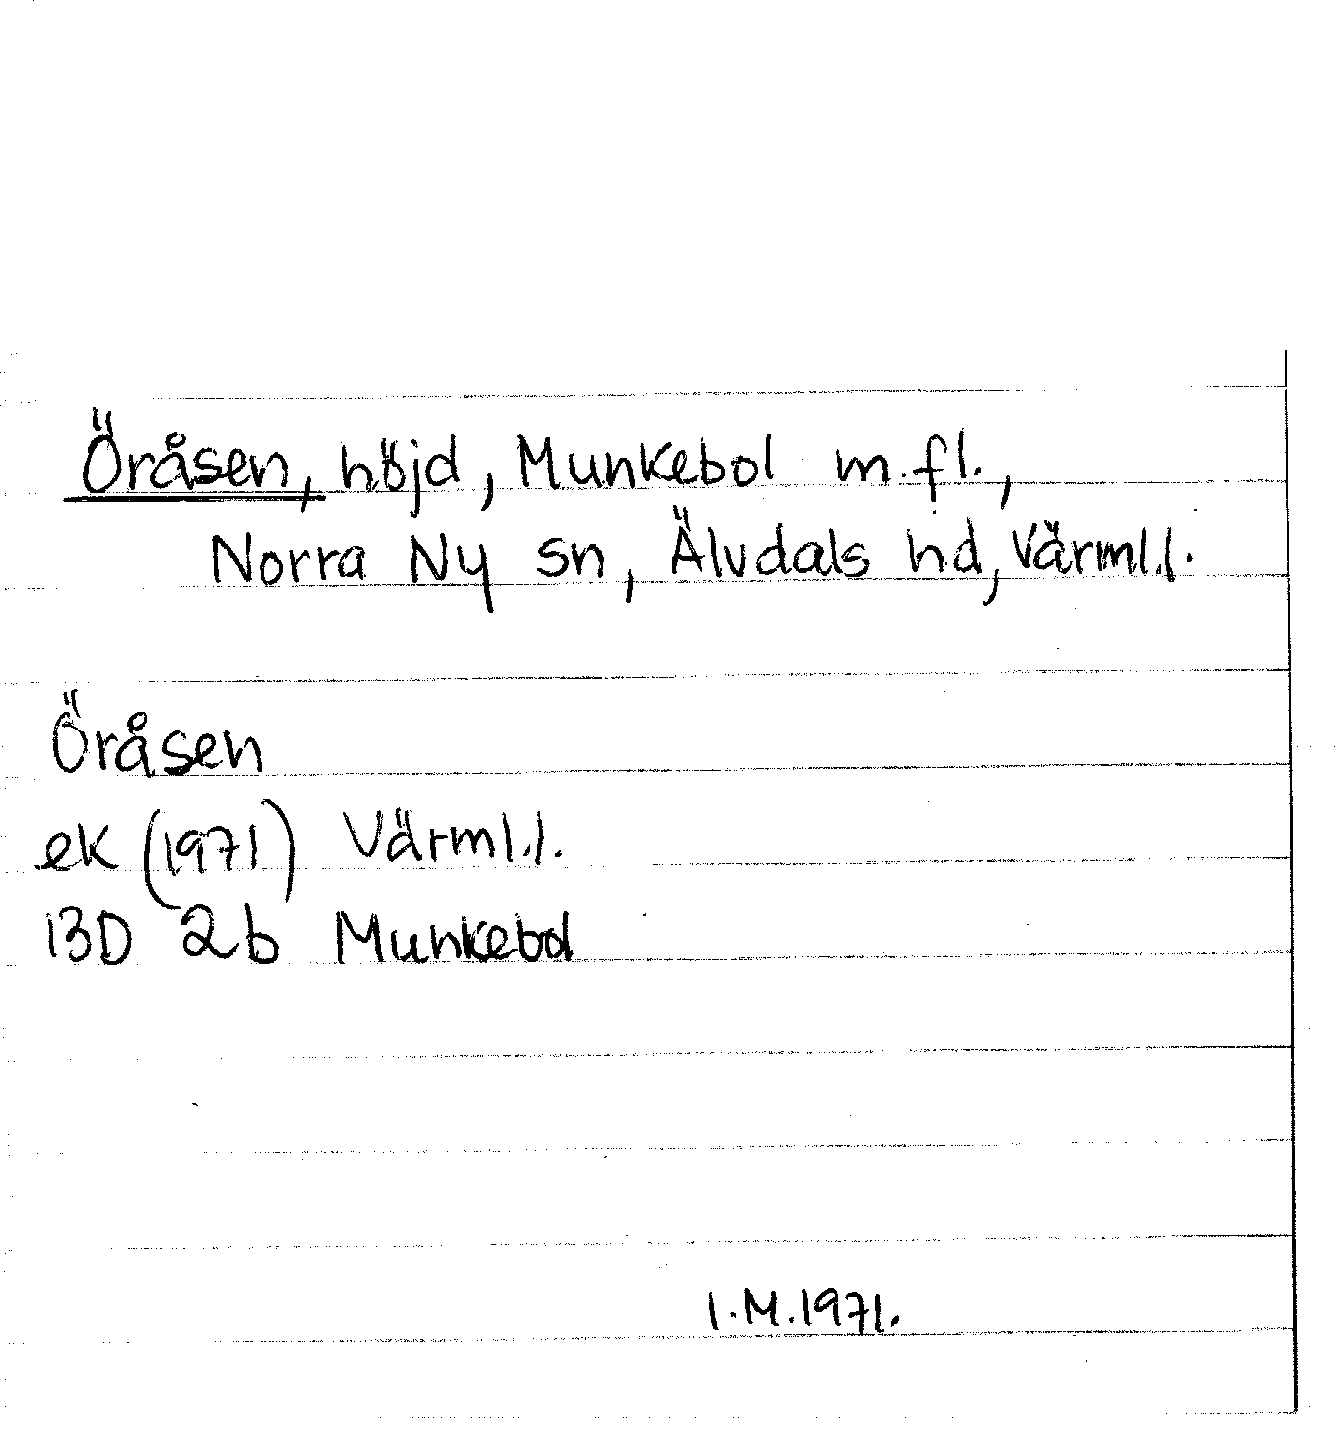 Öråsen, höjd, Munkebol m.fl.,
Norra Ny sn, Älvdals hd, Värml.l.
Öråsen
ek (1971) Värml.l.
13D 2b Munkebol
I.M.1971.